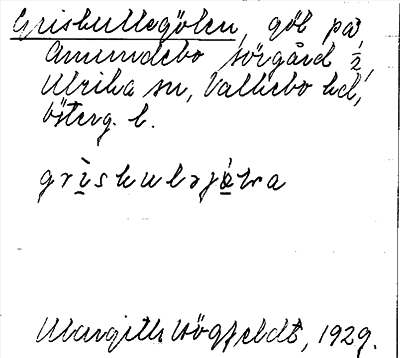 Griskullegölen, göl på
Amundebo sörgård ½,
Ulrika sn, Valkebo hd,
Österg. l.
grìskuləjə̀lva
Margith Högfeldt, 1929.